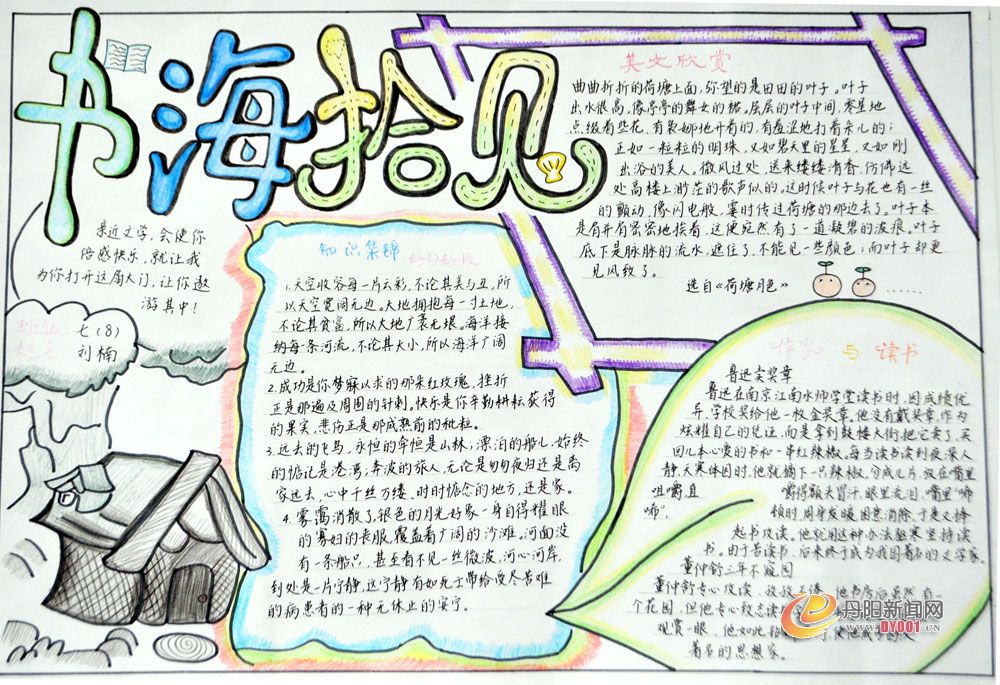 书海拾见
亲近文学,会使你
倍感快乐,就让我
为你打开这扇大门,让你遨
游其中!
七(8)
刘楠
知识集锦 好句好段
1.天空收容每一片云彩,不论其美与丑,所
以天空宽阔无边。大地拥抱每一寸土地,
不论其贫富,所以大地广袤无垠。海洋接
纳每一条河流,不论其大小,所以海洋广阔
无边。
2.成功是你梦寐以求的那朵红玫瑰,挫折
正是那遍及周围的针刺。快乐是你辛勤耕耘获得
的果实,悲伤正是那成熟前的秕粒。
3.远去的飞鸟,永恒的牵恒是山林;漂泊的船儿,始终
的惦记是港湾;奔波的旅人,无论是匆匆夜归还是离
家远去,心中千丝万缕、时时惦念的地方,还是家。
4.雾霭消散了,银色的月光好象一身自得耀眼
的寡妇的丧服,覆盖着广阔的沙滩,河面没
有一条船只,甚至看不见一丝微波,河心河岸,
到处是一片宁静,这宁静有如死亡带给受尽苦难
的病患者的一种无休止的安宁。
美文欣赏
曲曲折折的荷塘上面,弥望的是田田的叶子。叶子
出水很高,像亭亭的舞女的裙。层层的叶子中间,零星地
点缀着些花,有袅娜地开着的,有羞涩地打着朵儿的;
正如一粒粒的明珠,又如碧天里的星星,又如刚
出浴的美人。微风过处,送来缕缕清香,仿佛远
处高楼上渺茫的歌声似的。这时候叶子与花也有一丝
的颤动,像闪电般,霎时传过荷塘的那边去了。叶子本
是肩并肩密密地挨着,这便宛然有了一道凝碧的波痕。叶子
底下是脉脉的流水,遮住了,不能见一些颜色;而叶子却更
见风致了。
选自《荷塘月色》 ......
作家 与 读书
鲁迅卖奖章
鲁迅在南京江南水师学堂读书时,因成绩优
异,学校奖给他一枚金奖章。他没有戴奖章作为
炫耀自己的凭证,而是拿到鼓楼大街把它卖了,买
回几本心爱的书和一串红辣椒。每当读书读到夜深人
静、天寒体困时,他就摘下一只辣椒,分成几片,放在嘴里
咀嚼,直嚼得额头冒汗,眼里流泪,嘴里“唏
唏”,顿时,周身发暖,困意消除,于是又捧
起书攻读。他就用这种办法驱寒坚持读
书。由于苦读书,后来终于成为我国著名的文学家。
董仲舒三年不窥园
董仲舒专心攻读,孜孜不倦。他书房后虽然有一
个花园,但他专心致志读
观赏一眼,他如此
著名的思想家。
丹阳新闻网
WWW.DY001.CN